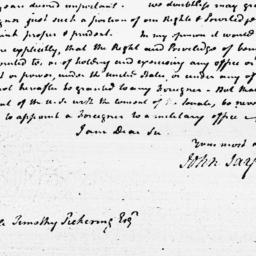 deemed important - we doubtless may
such a portion of our Rights &
proper & prudent. In my opinion it would
explicitly, that the Right and Priviledge of
or of holding and exercising any office or
or power, under the united States, or under any of
hereafter be granted to any Foreigner - But that
of the U.S. with the consent of Senate, be
to appoint a Foreigner to a military office
I am Dear Sir
Your most
John Jay
Timothy Pickering Esqr